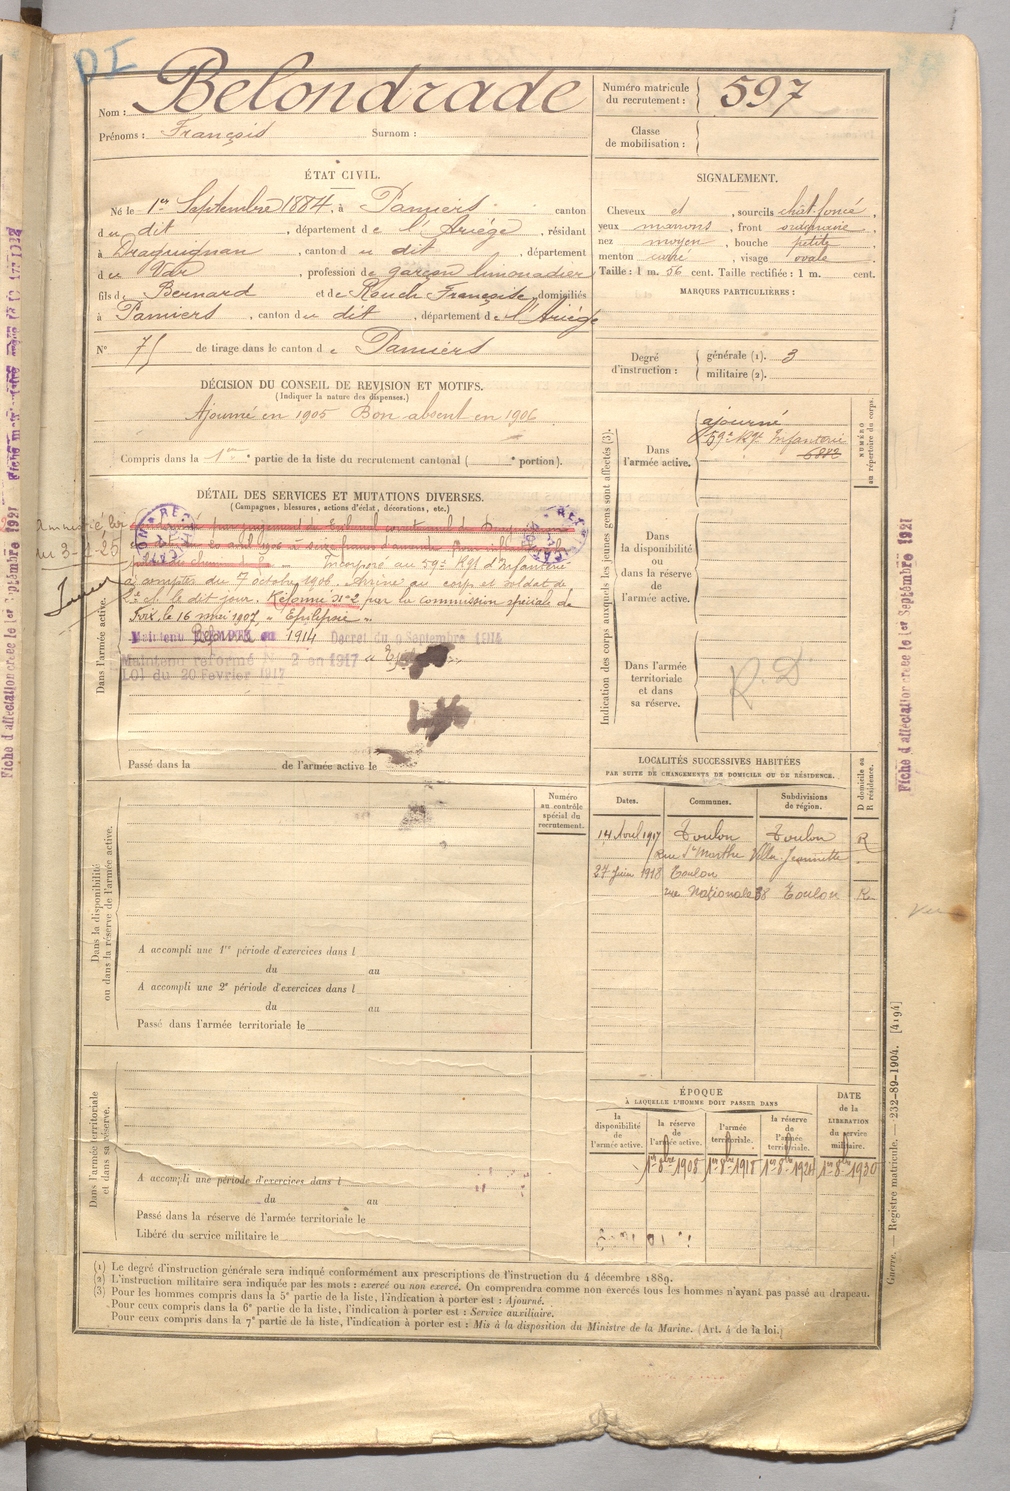 DI
Nom : Belondrade
Prénoms : François Surnom :
Numéro matricule
du recrutement : 597
Classe
de mobilisation :
ÉTAT CIVIL.
Né le 1er Septembre 1884, à Pamiers canton
du dit, département de l'Ariége, résidant
à Draguignan, canton du dit, département
du Var, profession de garçon limonadier
fils de Bernard et de Rouch Françoise, domiciliés
à Pamiers, canton du dit, département de l'Ariége
N° 75 de tirage dans le canton de Pamiers
SIGNALEMENT.
Cheveux et, sourcils chât. foncé,
yeux marrons, front ordinaire,
nez moyen, bouche petite,
menton carré, visage ovale.
Taille : 1 m. 56 cent. Taille rectifiée : 1 m. cent.
MARQUES PARTICULIÈRES :
Degré
d'instruction :
générale (1). 3
militaire (2).
DÉCISION DU CONSEIL DE REVISION ET MOTIFS.
(Indiquer la nature des dispenses.)
Ajourné en 1905 Bon absent en 1906
Compris dans la 1re partie de la liste du recrutement cantonal ( e portion).
DÉTAIL DES SERVICES ET MUTATIONS DIVERSES.
(Campagnes, blessures, actions d'éclat, décorations, etc.)
Amnistié loi
du 3-1-25
Incorporé au 59e Rgt d'Infanterie
à compter du 7 octobre 1906. Arrivé au corps et soldat de
2e cl. le dit jour. Réformé n° 2 par la commission spéciale de
Foix, le 16 mai 1907, " Epilepsie "
Maintenu Réformé en 1914 Decret du 9 Septembre 1914
Maintenu réformé No 2 en 1917
Loi du 20 Février 1917
Dans l'armée active.
Passé dans la de l'armée active le
Indication des corps auxquels les jeunes gens sont affectés (3).
NUMÉRO
au répertoire du corps.
Dans
l'armée active.
ajourné
59e Rgt Infanterie
Dans
la disponibilité
ou
dans la réserve
de
l'armée active.
Dans l'armée
territoriale
et dans
sa réserve.
R. D
LOCALITÉS SUCCESSIVES HABITÉES
PAR SUITE DE CHANGEMENTS DE DOMICILE OU DE RÉSIDENCE.
Dates. Communes. Subdivisions
de région.
D domicile ou
R résidence.
14 Avril 1917 Toulon Toulon R
Rue Ste Marthe Villa Jeannette
27 Juin 1918 Toulon
rue Nationale 38 Toulon
Numéro
au contrôle
spécial du
recrutement.
Dans la disponibilité
ou dans la réserve de l'armée active.
A accompli une 1re période d'exercices dans l
du au
A accompli une 2e période d'exercices dans l
du au
Passé dans l'armée territoriale le
Dans l'armée territoriale
et dans sa réserve.
A accompli une période d'exercices dans l
du au
Passé dans la réserve de l'armée territoriale le
Libéré du service militaire le
ÉPOQUE
À LAQUELLE L'HOMME DOIT PASSER DANS
la
disponibilité
de
l'armée active.
la réserve
de
l'armée active.
l'armée
territoriale.
la réserve
de
l'armée
territoriale.
DATE
de la
LIBERATION
du service
militaire.
1er 8bre 1908 1er 8bre 1918 1er 8bre 1924 1er 8bre 1930
(1) Le degré d'instruction générale sera indiqué conformément aux prescriptions de l'instruction du 4 décembre 1889.
(2) L'instruction militaire sera indiquée par les mots : exercé ou non exercé. On comprendra comme non exercés tous les hommes n'ayant pas passé au drapeau.
(3) Pour les hommes compris dans la 5e partie de la liste, l'indication à porter est : Ajourné.
Pour ceux compris dans la 6e partie de la liste, l'indication à porter est : Service auxiliaire.
Pour ceux compris dans la 7e partie de la liste, l'indication à porter est : Mis à la disposition du Ministre de la Marine. (Art. 4 de la loi.)
Guerre. — Registre matricule. — 232-89-1904. [4194]
Fiche d'affectation créée le 1er Septembre 1921
Fiche d'affectation créée le 1er Septembre 1921